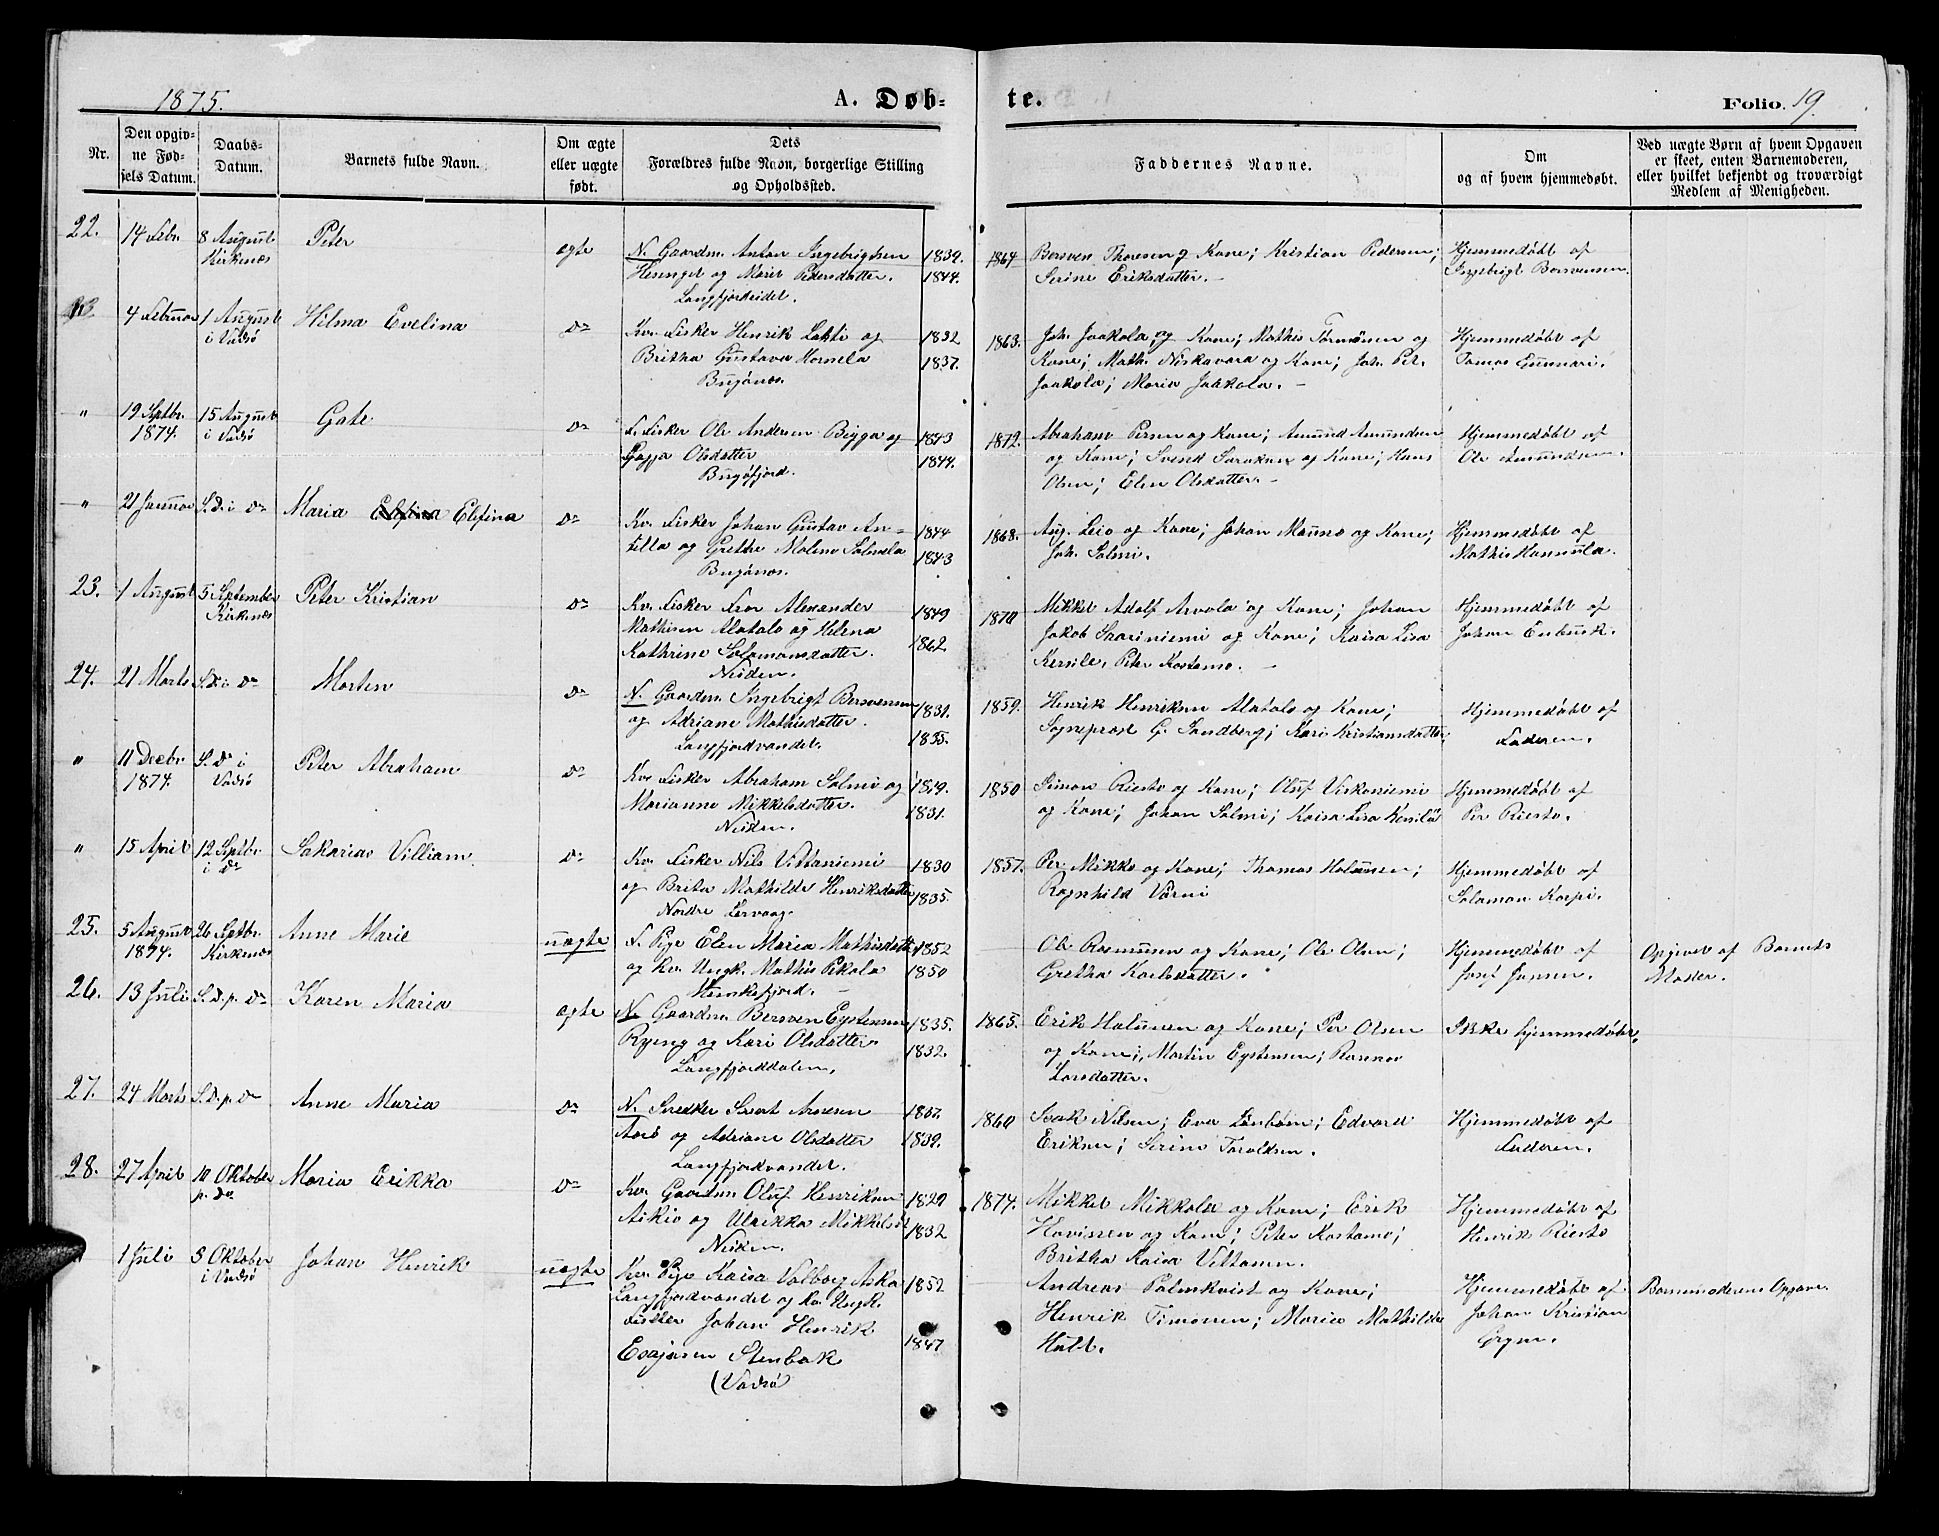 1875.
A. Døb-
te.
Folio. 19.
Nr.
Den opgiv-
ne Fød-
sels Datum.
Daabs-
Datum.
Barnets fulde Navn.
Om ægte
eller uægte
født.
Dets
Forældres fulde Navn, borgerlige Stilling
og Opholdssted.
Faddernes Navne.
Om
og af hvem hjemmedøbt.
Ved uægte Børn af hvem Opgaven
er skeet, enten Barnemoderen,
eller hvilket bekjendt og troværdigt
Medlem af Menigheden.
22. 14 Febr. 8 August Peter ægte N. Gaardm. Anton Ingebrigtsen 1839. 1864 Bersven Thoresen og Kone; Kristian Pedersen; Hjemmedøbt af
Kirkenæs og Marit Pedersdatter. 1844. Serine Eriksdatter. – Ingebrigt Bersvensen.
Langfjordeidet.
4 Februar 1 August Hilma Evelina do Kv. Fisker Henrik Lahti og 1832 1863. Joh. Jaakola og Kone; Mathis Tormänen og Hjemmedøbt af
i Vadsø Britha Gustava Hornela 1837. Kone; Math. Niskavara og Kone; Joh. Pet. Tomas Gunnari.
Bugönæs. Jaakola; Maria Jaakola. –
" 19 Septbr. 15 August Gate do L. Fisker Ole Andersen Bigga og 1843 1872. Abraham Persen og Kone; Amund Amundsen Hjemmedøbt af
1874. i Vadsø Gagja Olsdatter 1844. og Kone; Svend Sarakka og Kone; Hans Ole Amundsen.
Bugöfjord. Olsen; Elen Olsdatter. –
" 21 Januar S.D. i do Maria Elefina do Kv. Fisker Johan Gustav An- 1844 1868. Aug. Leio og Kone; Johan Mauno og Kone; Hjemmedøbt af
tilla og Grethe Malene Salmela 1843 Joh. Salmi. Mathis Hannula.
Bugönæs.
23. 1 August 5 September Peter Kristian do Kv. Fisker Iver Alexander 1849 1870 Mikkel Adolf Arvola og Kone; Johan Hjemmedøbt af
Kirkenæs Mathisen Alatalo og Helena 1862. Jakob Saariniemi og Kone; Kaisa Lisa Johan Enbusk.
Kathrine Salomonsdatter. Kersile, Peter Kostamo. –
Neiden.
24. 21 Marts S.D. i do Morten do N. Gaardm. Ingebrigt Bersvensen 1831. 1859. Henrik Henriksen Alatalo og Kone; Hjemmedøbt af
og Adriane Mathisdatter. 1835. Sogneprest G. Sandberg; Kari Kristiansdatter Faderen.
Langfjordvandet.
" 11 Decbr. S.D. i Peter Abraham do Kv. Fisker Abraham Salmi og 1819. 1850 Simon Riesto og Kone; Oluf Viskaniemi Hjemmedøbt af
1874. Vadsø Marianne Mikkelsdatter. 1831. og Kone; Johan Salmi; Kaisa Lisa Kersilä Per Riesto.
Neiden.
" 15 April 12 Septbr. Sakarias Villiam do Kv. Fisker Nils Vittaniemi 1830 1857. Per Mikko og Kone; Thomas Halonen; Hjemmedøbt af
i do og Brita Mathilde Henriksdatter 1835. Ragnhild Värni Salomon Korpi.
Nordre Lervaag.
25. 5 August 26 Septbr. Anne Marie uægte L. Pige Elen Maria Mathisdatter 1852 Ole Rasmussen og Kone; Ole Olsen; Hjemmedøbt af Opgivet af Barnets
1874. Kirkenæs og Kv. Ungk. Mathis Pekala 1850 Gretha Karlsdatter. Josef Jonsen. Moder.
Munkefjord. –
26. 13 Juli S.D. p. do Karen Maria ægte N. Gaardm. Bersven Eystensen 1835. 1865. Erik Halonen og Kone; Per Olsen Ikke hjemmedøbt.
Ryeng og Kari Olsdatter. 1832. og Kone; Martin Eystensen; Rasmus
Langfjorddalen. Larsdatter.
27. 24 Marts S.D. p. do Anne Maria do N. Snedker Sivert Arnesen 1837. 1860 Isak Nilsen; Eva Lenbom; Edvard Hjemmedøbt af
Aarö og Adriane Olsdatter 1839. Eriksen; Serine Taraldsen. Faderen.
Langfjordvandet.
28. 27 April 10 Oktober Maria Erikka do Kv. Gaardm. Oluf Henriksen 1829 1874. Mikkel Mikkola og Kone; Erik Hjemmedøbt af
p. do Askio og Ulrikka Mikkelsd. 1832 Havissen og Kone; Peter Kostamo; Henrik Riesto
Neiden. Britha Kaisa Vittanen.
1 Juli 3 Oktober Johan Henrik uægte Kv. Pige Kaisa Valborg Aska 1852 Andreas Palmkvist og Kone; Hjemmedøbt af Barnemoderens Opgave.
i Vadsø Langfjordvandet og Kv. Ungk. Henrik Timonen; Maria Mathilde Johan Kristian
Fisker Johan Henrik 1847 Hull. Grym.
Esajasen Stenbak
(Vadsø